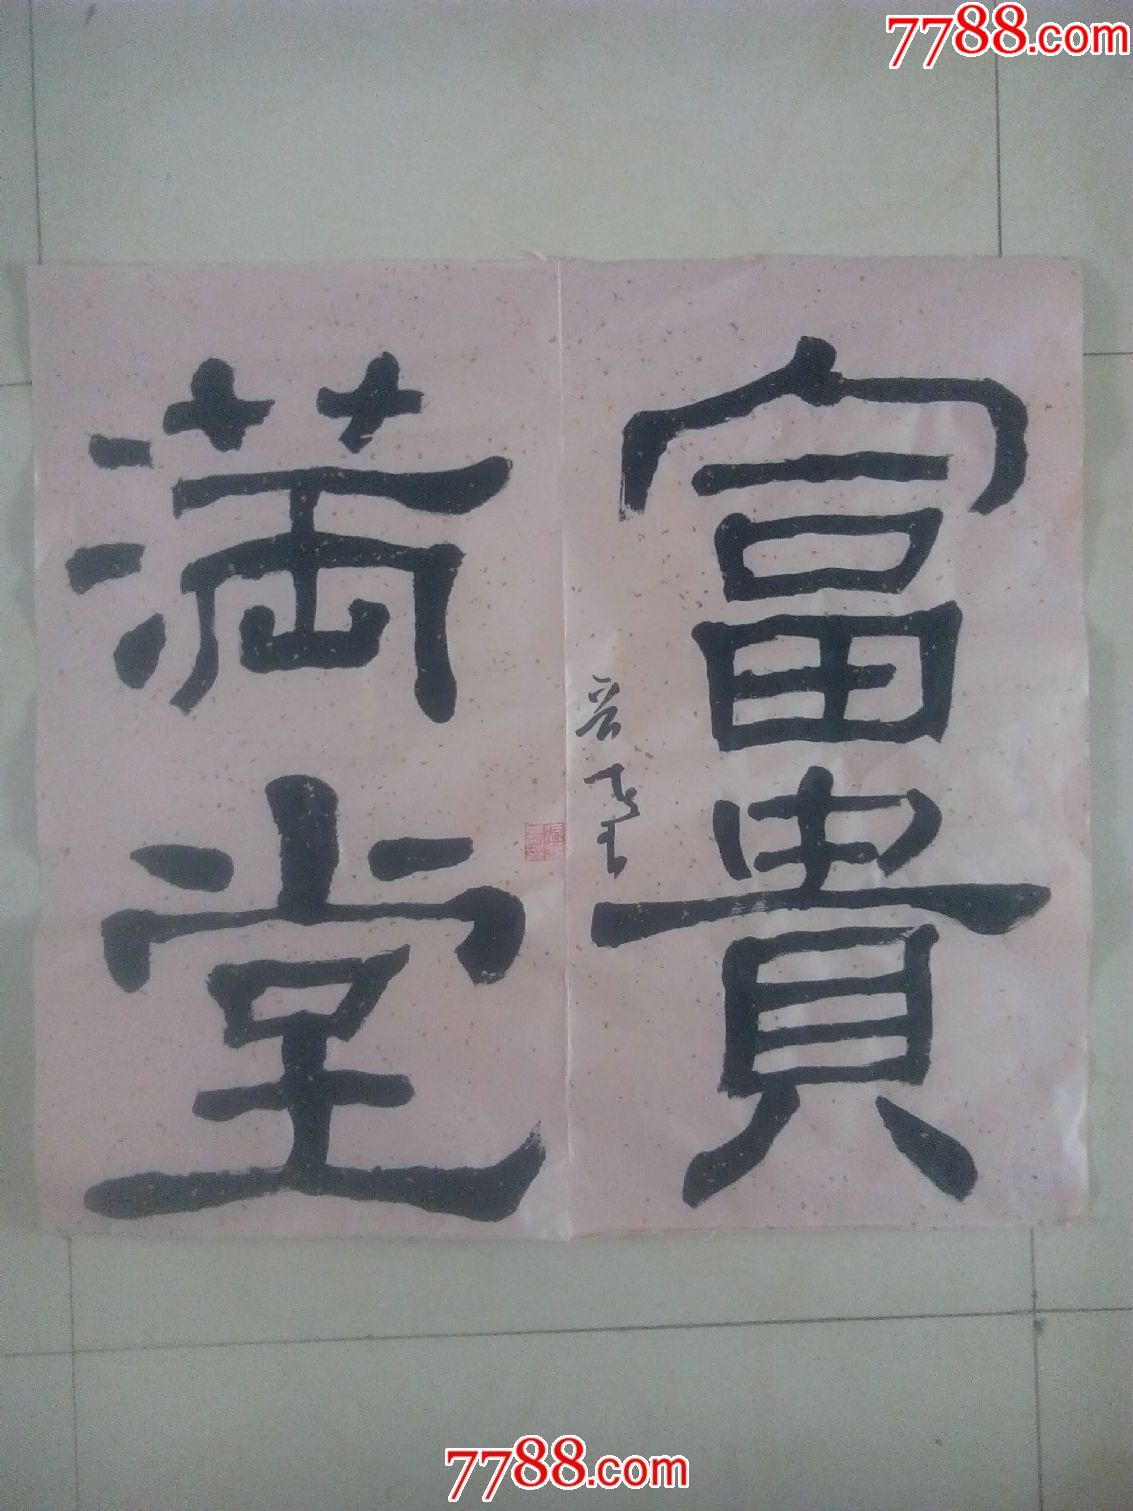 7788.com
富貴
满堂
7788.com